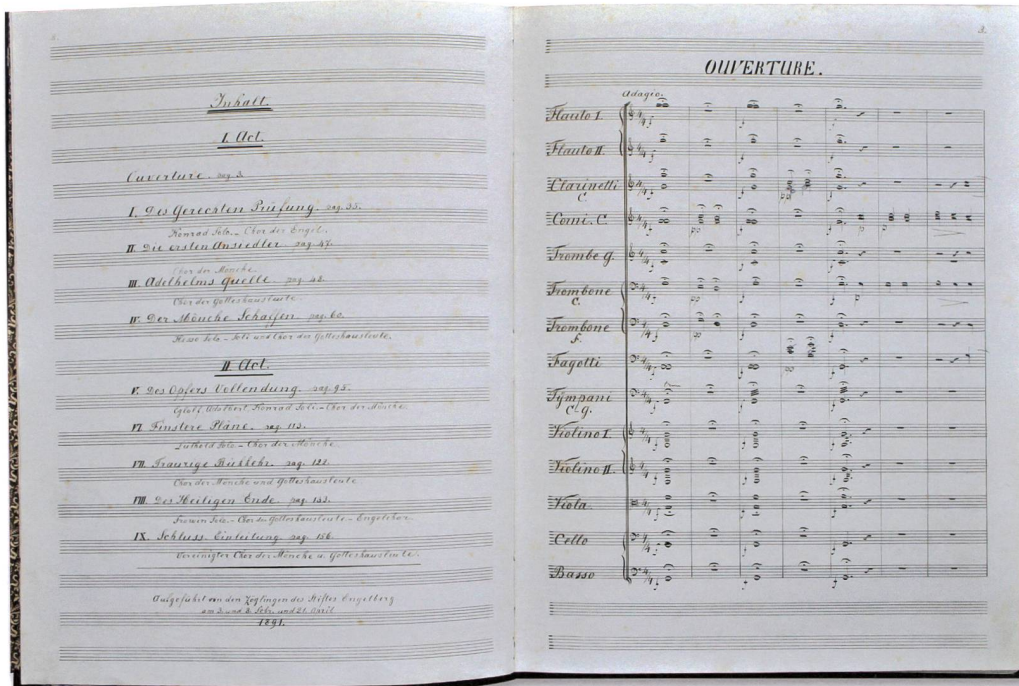 Inhalt.
I. Act.
Ouverture. pag. 3.
I. Des Gerechten Prüfung. pag. 35.
Konrad Solo. – Chor der Engel.
II. Die ersten Ansiedler. pag. 47.
Chor der Mönche.
III. Adelhelms Quelle pag. 48.
Chor der Gotteshausleute.
IV. Der Mönche Schaffen. pag. 60.
Solo. – Soli und Chor der Gotteshausleute.
II. Act.
V. Des Opfers Vollendung. pag. 95.
Adelbert, Konrad Soli. – Chor der Mönche.
VI. Finstere Pläne. pag. 113.
Luthold Solo – Chor der Mönche
VII. Traurige Rückkehr. pag. 122.
Chor der Mönche und Gotteshausleute
VIII. Des Heiligen Ende pag. 143.
Frowin Solo. – Chor der Gotteshausleute – Engelchor
IX. Schluss. Einleitung pag. 156.
Vereinigter Chor der Mönche u. Gotteshausleute.
Aufgeführt von den Zöglingen des Stiftes Engelberg
am 3. und 8. Febr. und 21. April
1891.
3.
OUVERTURE.
Adagio.
Flauto I.
Flauto II.
Clarinetti
C
Corni. C.
Trombe G.
Trombone
C.
Trombone
F.
Fagotti
Tÿmpani
C G.
Violino I.
Violino II.
Viola.
Cello
Basso